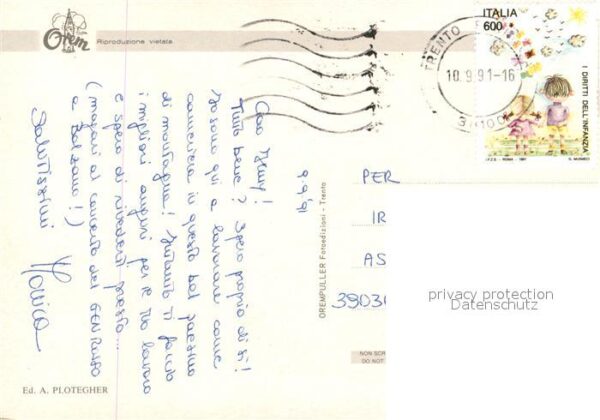 Orem
Riproduzione vietata
ITALIA
600
I DIRITTI DELL'INFANZIA
I.P.Z.S. - ROMA - 1991
TRENTO
10.9.91-16
9.9.91
Ciao
Tutto bene? Spero proprio di sì!
Io sono qui a lavorare come
cameriera in questo bel paesino
di montagna! Intanto ti faccio
i migliori auguri per il tuo lavoro
e spero di rivederti presto...
(magari al concerto dei GEN ROSSO
a Bolzano!)
Salutissimi
Monica
OREMPULLER Fotoedizioni - Trento
PER
IR
AS
39030
privacy protection
Datenschutz
NON SCR
DO NOT
Ed. A. PLOTEGHER